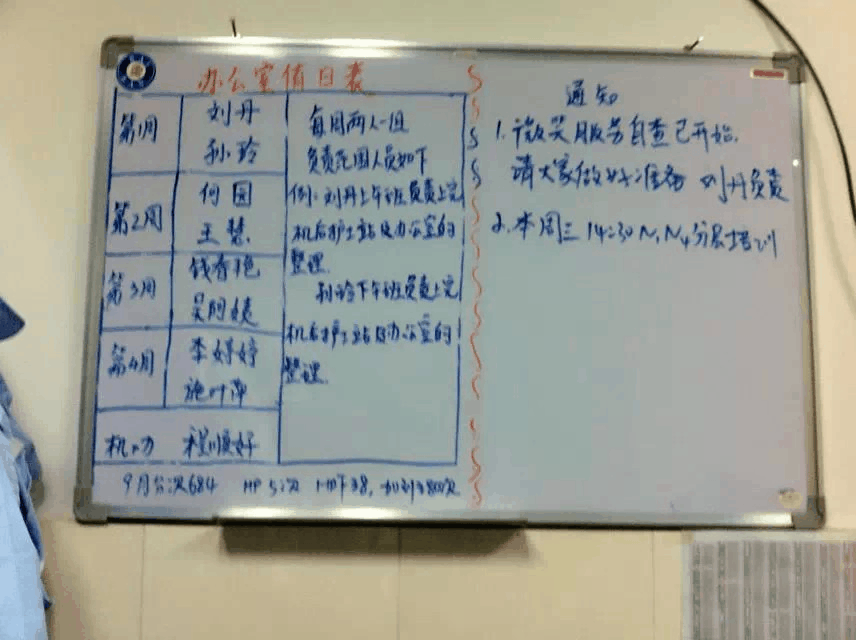 办公室值日表
第1周
刘丹
孙玲
第2周
何园
王慧
第3周
钱香艳
吴阿姨
第4周
李婷婷
施叶萍
机动
程顺好
每周两人一组
负责范围人员如下
例:刘丹上午班负责上完
机后护士站及办公室的
整理.
孙玲下午班负责上完
机后护士站及办公室的
整理.
9月份次684 HP 51次
通知
1.微笑服务自查已开始.
请大家做好准备 刘丹负责
2.本周三 14:30 N1N4分层培训